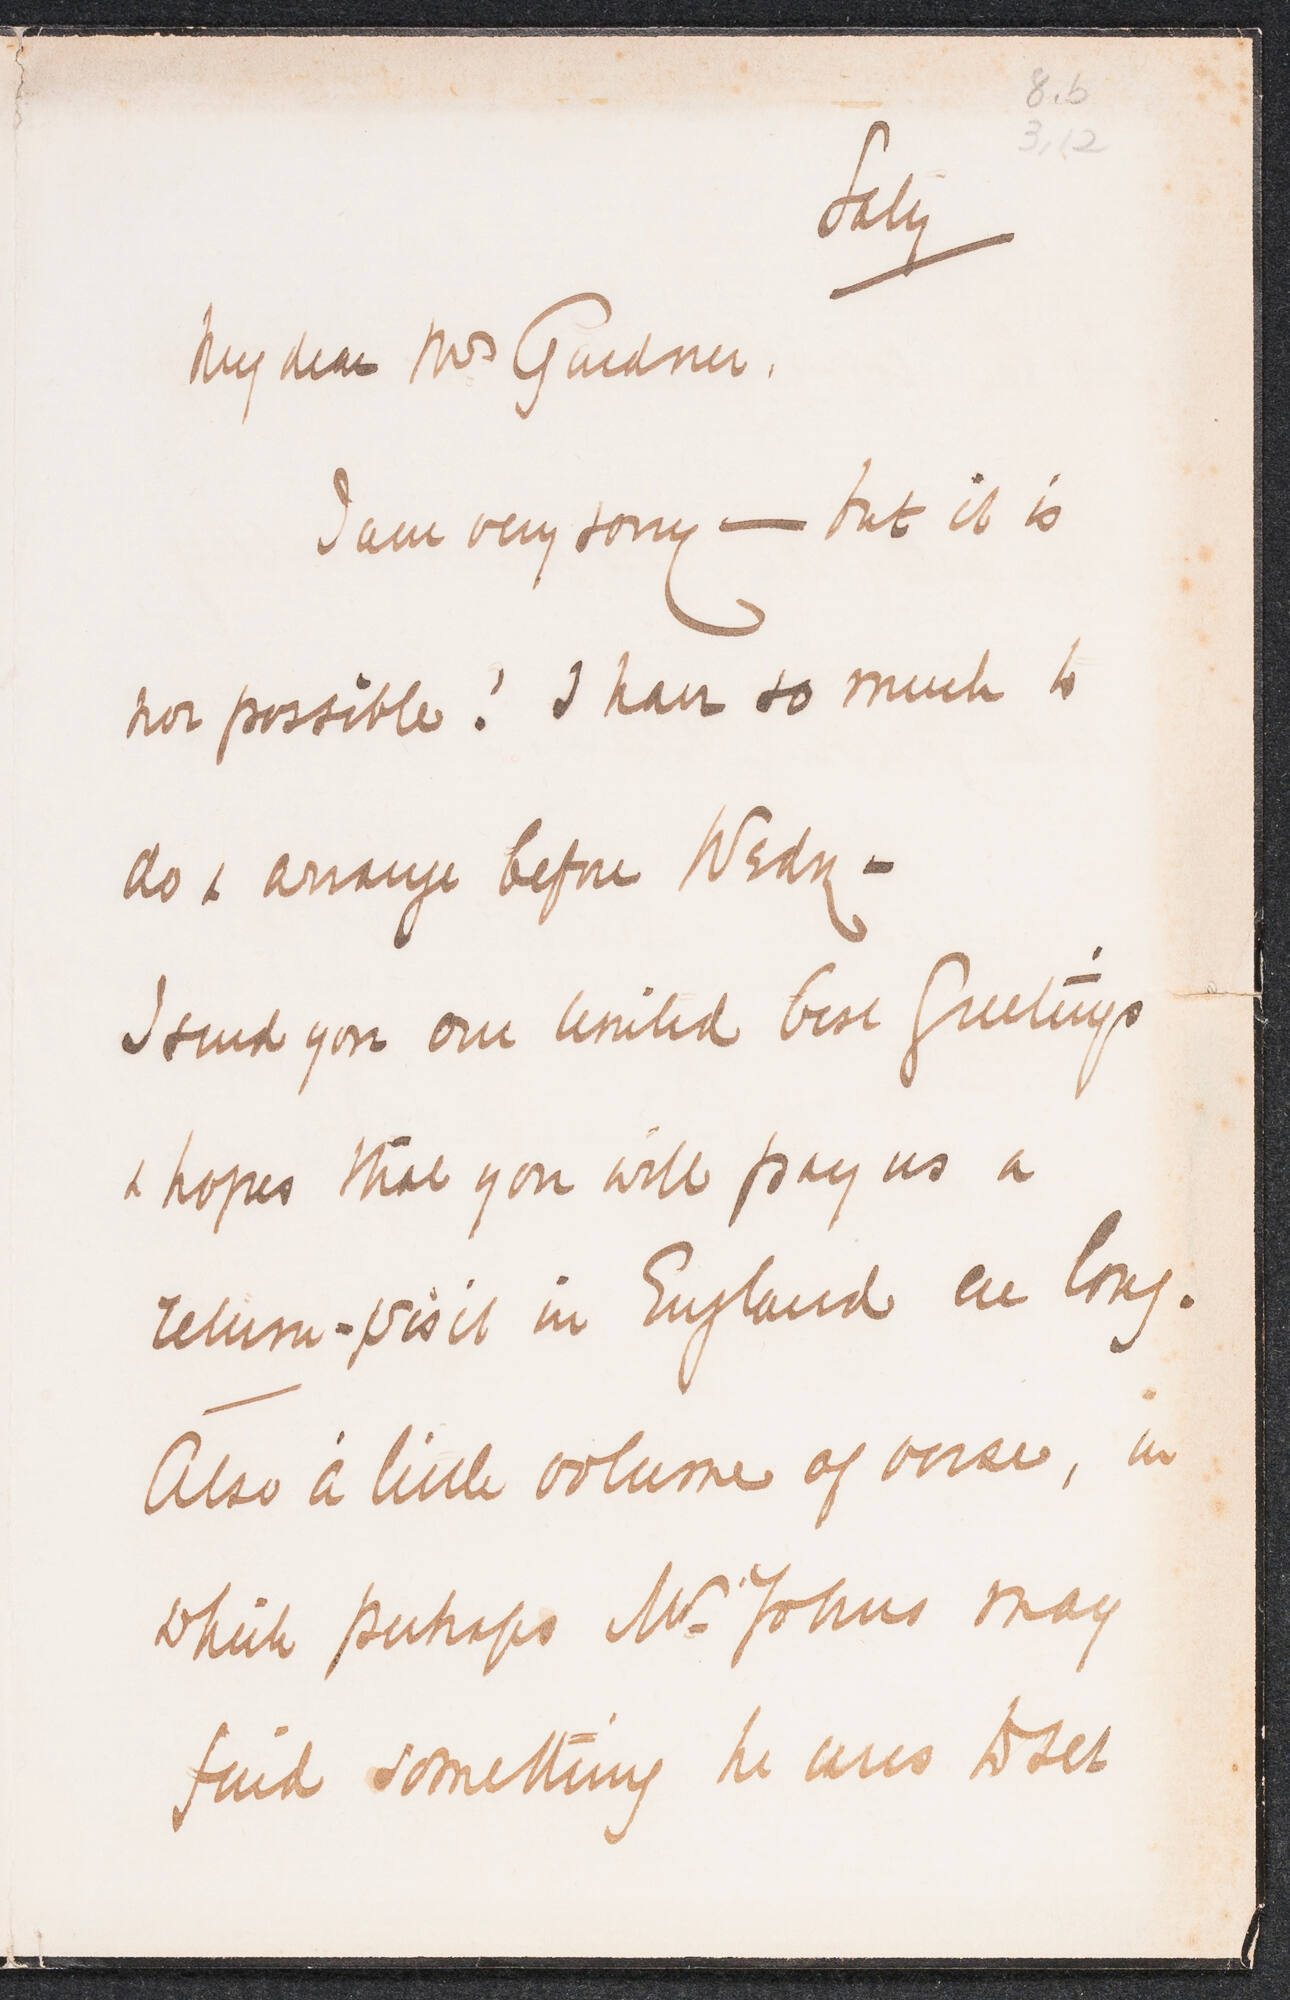 8.b
3,12
Saty
My dear Mrs Gardner.
I am very sorry — but it is
not possible! I have so much to
do & arrange before Wedy -
I send you our united best Greetings
& hopes that you will pay us a
return-visit in England ere long.
Also a little volume of verse, in
which perhaps Mr. Johns may
find something he cares to set